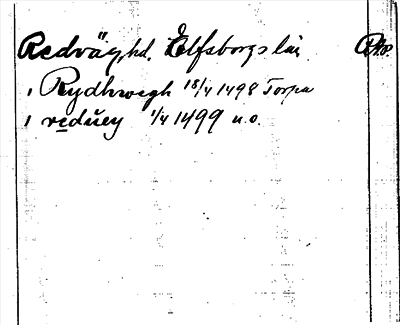 Redväg hd. Elfsborgs län
i Rydhwegh 18/4 1498 Torpa
i redüey 1/4 1499 u.o.